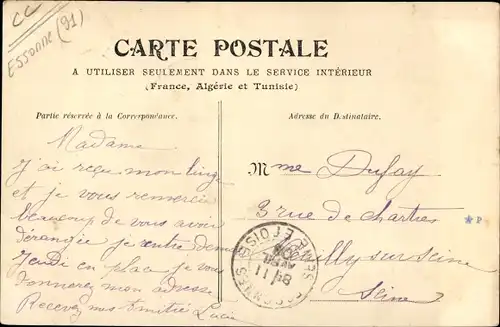 CC
Essonne (91)
CARTE POSTALE
A UTILISER SEULEMENT DANS LE SERVICE INTÉRIEUR
(France, Algérie et Tunisie)
Partie réservée à la Correspondance.
Adresse du Destinataire.
Madame
J'ai reçu mon linge
et je vous remercie
beaucoup de vous avoir
dérangée je rentre
Jeudi en place je vous
donnerez mon adresse
Recevez mes Amitié Lucie
Mme Dufay
3 rue de Chartres
Neuilly sur Seine
Seine
*P